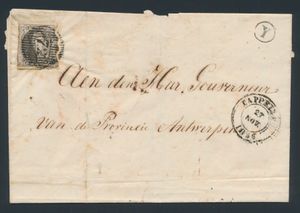 Y
Aen den Heer Gouverneur
van de Provincie Antwerpen
CAPPELLE
27
NOV.